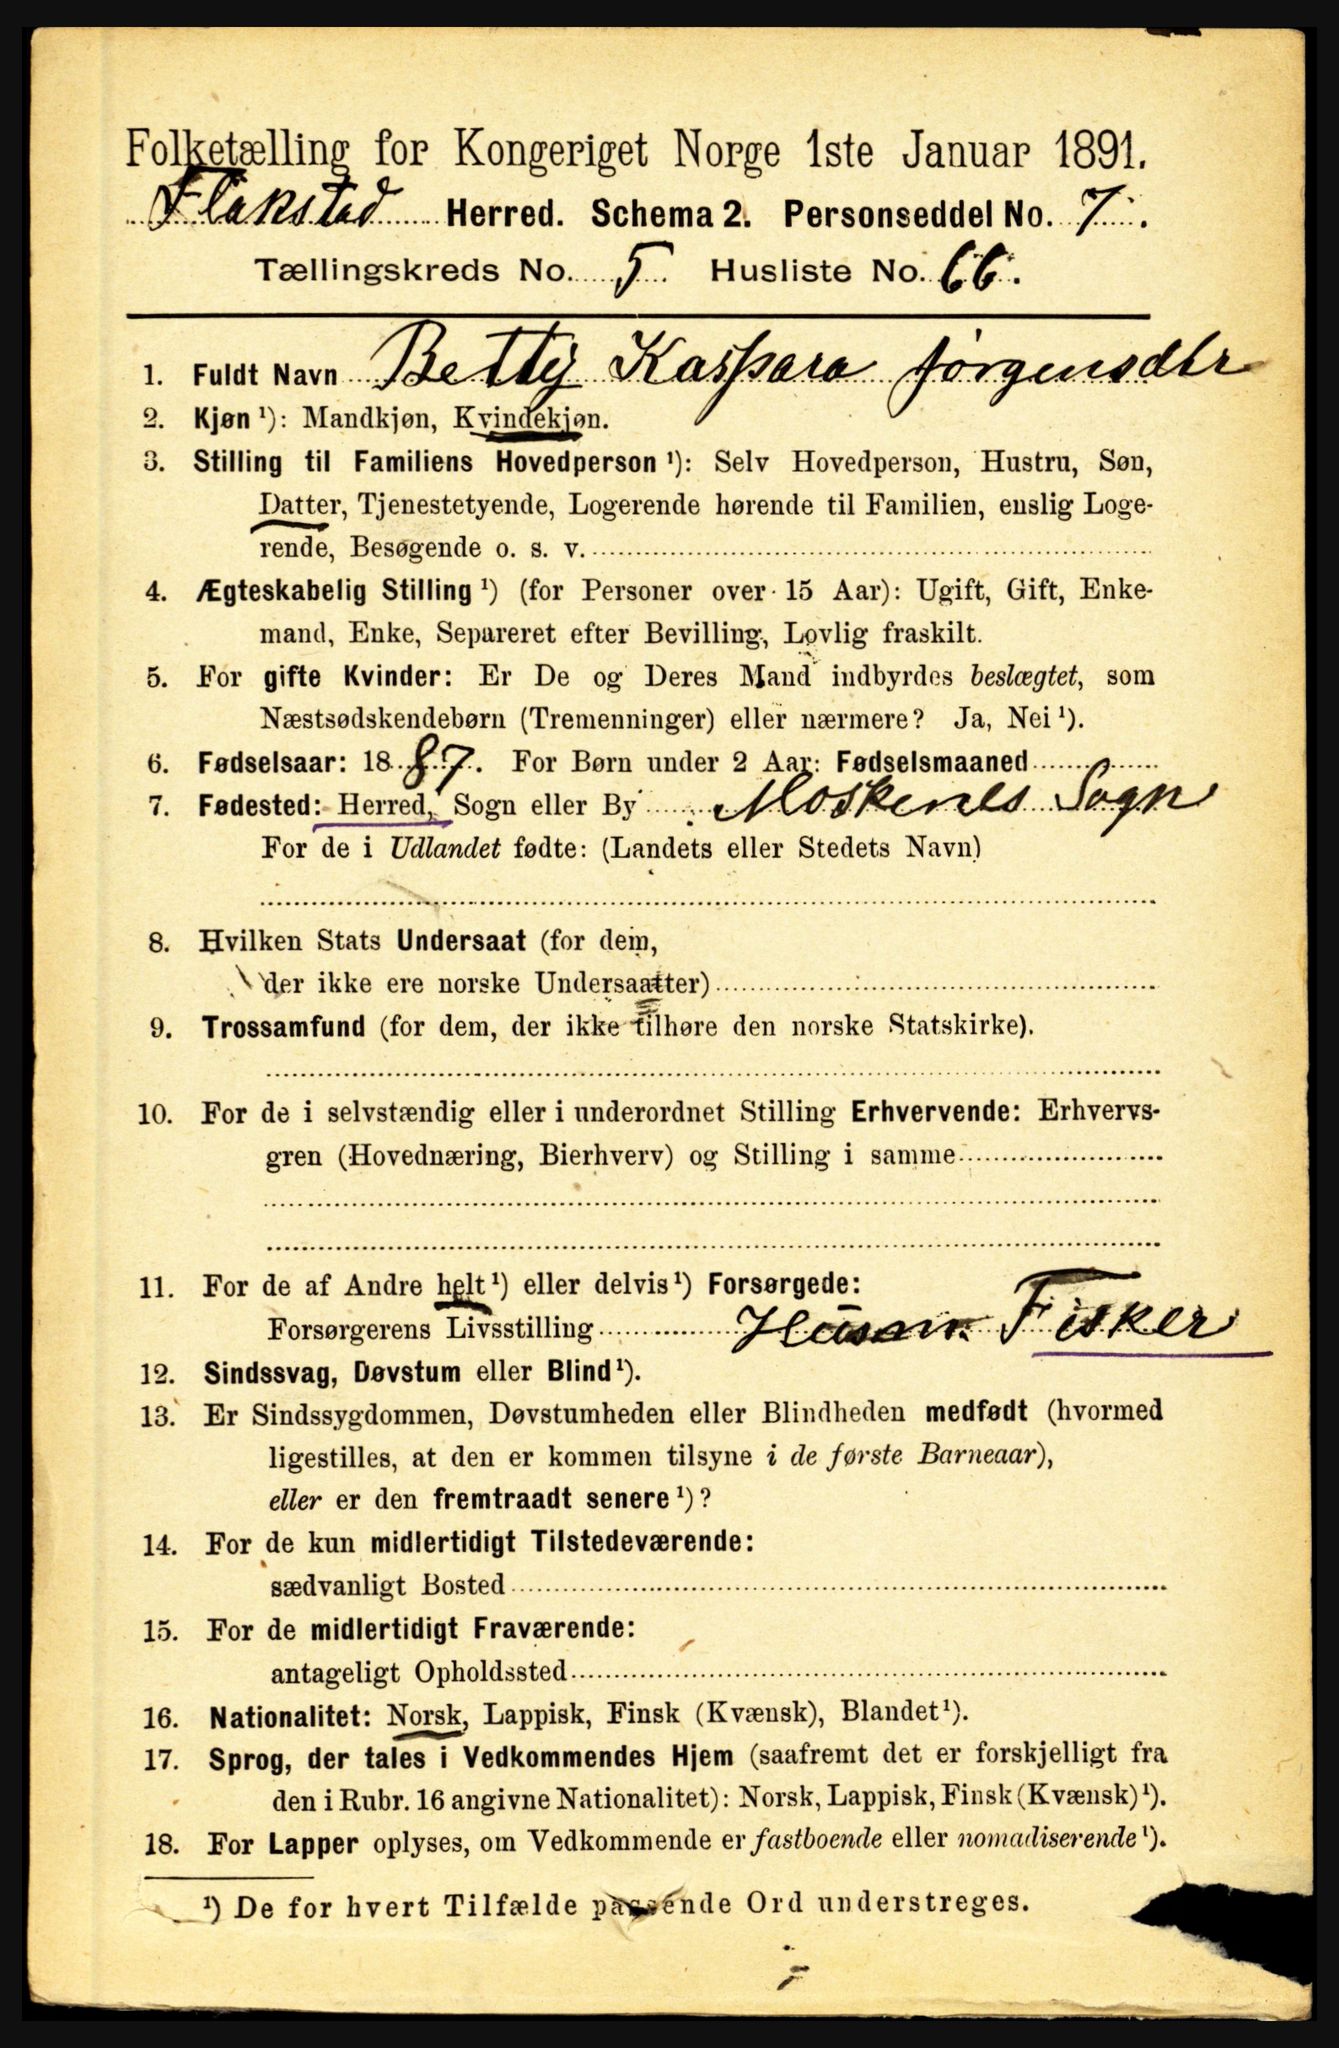 Folketælling for Kongeriget Norge 1ste Januar 1891.
Flakstad Herred. Schema 2. Personseddel No. 7.
Tællingskreds No. 5 Husliste No. 66.
1. Fuldt Navn Betty Kaspara Jörgensdtr
2. Kjøn ¹): Mandkjøn, Kvindekjøn.
3. Stilling til Familiens Hovedperson ¹): Selv Hovedperson, Hustru, Søn,
Datter, Tjenestetyende, Logerende hørende til Familien, enslig Loge-
rende, Besøgende o. s. v.
4. Ægteskabelig Stilling ¹) (for Personer over 15 Aar): Ugift, Gift, Enke-
mand, Enke, Separeret efter Bevilling, Lovlig fraskilt.
5. For gifte Kvinder: Er De og Deres Mand indbyrdes beslægtet, som
Næstsødskendebørn (Tremenninger) eller nærmere? Ja, Nei ¹).
6. Fødselsaar: 1887. For Børn under 2 Aar: Fødselsmaaned
7. Fødested: Herred, Sogn eller By Moskenes Sogn
For de i Udlandet fødte: (Landets eller Stedets Navn)
8. Hvilken Stats Undersaat (for dem,
der ikke ere norske Undersaatter)
9. Trossamfund (for dem, der ikke tilhøre den norske Statskirke).
10. For de i selvstændig eller i underordnet Stilling Erhvervende: Erhvervs-
gren (Hovednæring, Bierhverv) og Stilling i samme
11. For de af Andre helt ¹) eller delvis ¹) Forsørgede:
Forsørgerens Livsstilling Husm. Fisker
12. Sindssvag, Døvstum eller Blind ¹).
13. Er Sindssygdommen, Døvstumheden eller Blindheden medfødt (hvormed
ligestilles, at den er kommen tilsyne i de første Barneaar),
eller er den fremtraadt senere ¹)?
14. For de kun midlertidigt Tilstedeværende:
sædvanligt Bosted
15. For de midlertidigt Fraværende:
antageligt Opholdssted
16. Nationalitet: Norsk, Lappisk, Finsk (Kvænsk), Blandet ¹).
17. Sprog, der tales i Vedkommendes Hjem (saafremt det er forskjelligt fra
den i Rubr. 16 angivne Nationalitet): Norsk, Lappisk, Finsk (Kvænsk) ¹).
18. For Lapper oplyses, om Vedkommende er fastboende eller nomadiserende ¹).
¹) De for hvert Tilfælde passende Ord understreges.